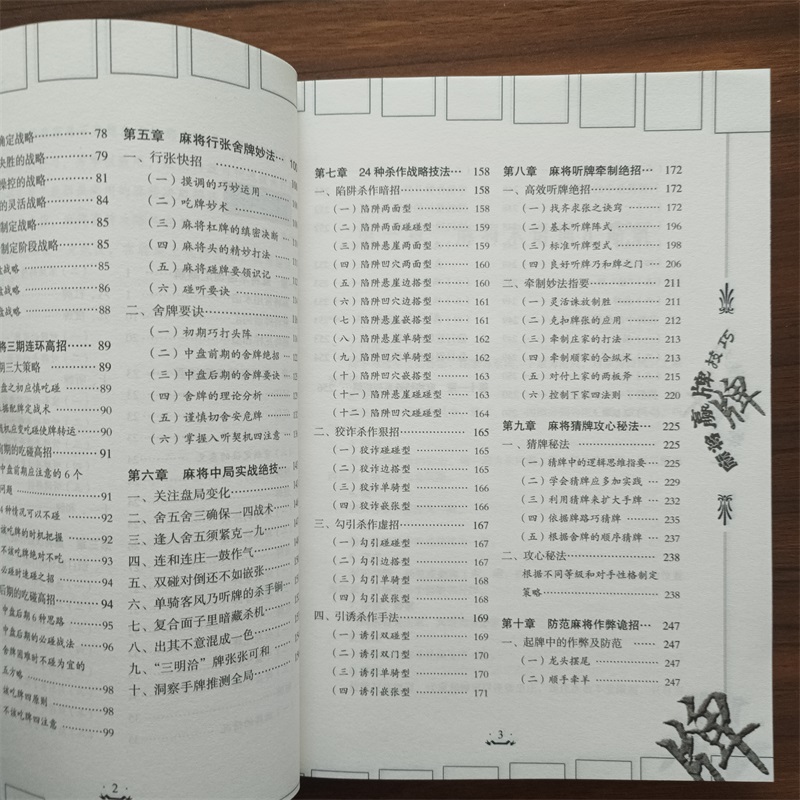 确定战略 78
决胜的战略 79
操控的战略 81
的灵活战略 84
制定战略 85
制定阶段战略 85
战略 85
战略 86
战略 88
将三期连环高招 89
期三大策略 89
盘之初应慎吃碰 89
根据配牌定战术 90
机应变吃碰使牌转运 90
前期的吃碰高招 91
中盘前期应注意的6个
问题 91
6种情况可以不碰 92
该吃牌的时机把握 92
不该吃牌绝对不吃 93
必碰时速碰之招 94
后期的吃碰高招 94
中盘后期6种思路 94
中盘后期的必碰战法 95
舍牌困难时不碰为宜的
五方略 98
该吃牌四原则 98
不该吃牌四注意 99
2
第五章 麻将行张舍牌妙法
一、行张快招
(一)摸调的巧妙运用
(二)吃牌妙术
(三)麻将杠牌的缜密决断
(四)麻将头的精妙打法
(五)麻将碰牌要领识记
(六)碰听要诀
二、舍牌要诀
(一)初期巧打头阵
(二)中盘前期的舍牌绝招
(三)中盘后期的舍牌要诀
(四)舍牌的理论分析
(五)谨慎切舍安危牌
(六)掌握入听契机四注意
第六章 麻将中局实战绝技
一、关注盘局变化
二、舍五舍三确保一四战术
三、逢人舍五须紧克一九
四、连和连庄一鼓作气
五、双碰对倒还不如嵌张
六、单骑客风乃听牌的杀手锏
七、复合面子里暗藏杀机
八、出其不意混成一色
九、“三明洽”牌张张可和
十、洞察手牌推测全局
第七章 24种杀作战略技法 158
一、陷阱杀作暗招 158
(一)陷阱两面型 158
(二)陷阱两面碰碰型 159
(三)陷阱悬崖两面型 159
(四)陷阱凹穴两面型 160
(五)陷阱悬崖边搭型 160
(六)陷阱凹穴边搭型 161
(七)陷阱悬崖嵌搭型 161
(八)陷阱悬崖单骑型 162
(九)陷阱凹穴单骑型 162
(十)陷阱凹穴嵌张型 163
(十一)陷阱悬崖碰碰型 163
(十二)陷阱凹穴碰碰型 164
二、狡诈杀作狠招 165
(一)狡诈碰碰型 165
(二)狡诈边搭型 165
(三)狡诈单骑型 166
(四)狡诈嵌张型 166
三、勾引杀作虚招 167
(一)勾引碰碰型 167
(二)勾引边搭型 167
(三)勾引单骑型 168
(四)勾引嵌张型 168
四、引诱杀作手法 169
(一)诱引双碰型 169
(二)诱引双门型 170
(三)诱引单骑型 170
(四)诱引嵌张型 171
第八章 麻将听牌牵制绝招 172
一、高效听牌绝招 172
(一)找齐求张之诀窍 172
(二)基本听牌阵式 196
(三)标准听牌型式 198
(四)良好听牌乃和牌之门 206
二、牵制妙法指要 211
(一)灵活诛放制胜 211
(二)克扣牌张的应用 213
(三)牵制庄家的打法 213
(四)牵制顺家的合纵术 214
(五)对付上家的两板斧 215
(六)控制下家四法则 220
第九章 麻将猜牌攻心秘法 225
一、猜牌秘法 225
(一)猜牌中的逻辑思维指要 225
(二)学会猜牌应多加实践 229
(三)利用猜牌来扩大手牌 232
(四)依据牌路巧猜牌 235
(五)根据舍牌的顺序猜牌 237
二、攻心秘法 238
根据不同等级和对手性格制定
策略 238
第十章 防范麻将作弊诡招 247
一、起牌中的作弊及防范 247
(一)龙头摆尾 247
(二)顺手牵羊 247
3
麻将赢牌技巧
牌
牌